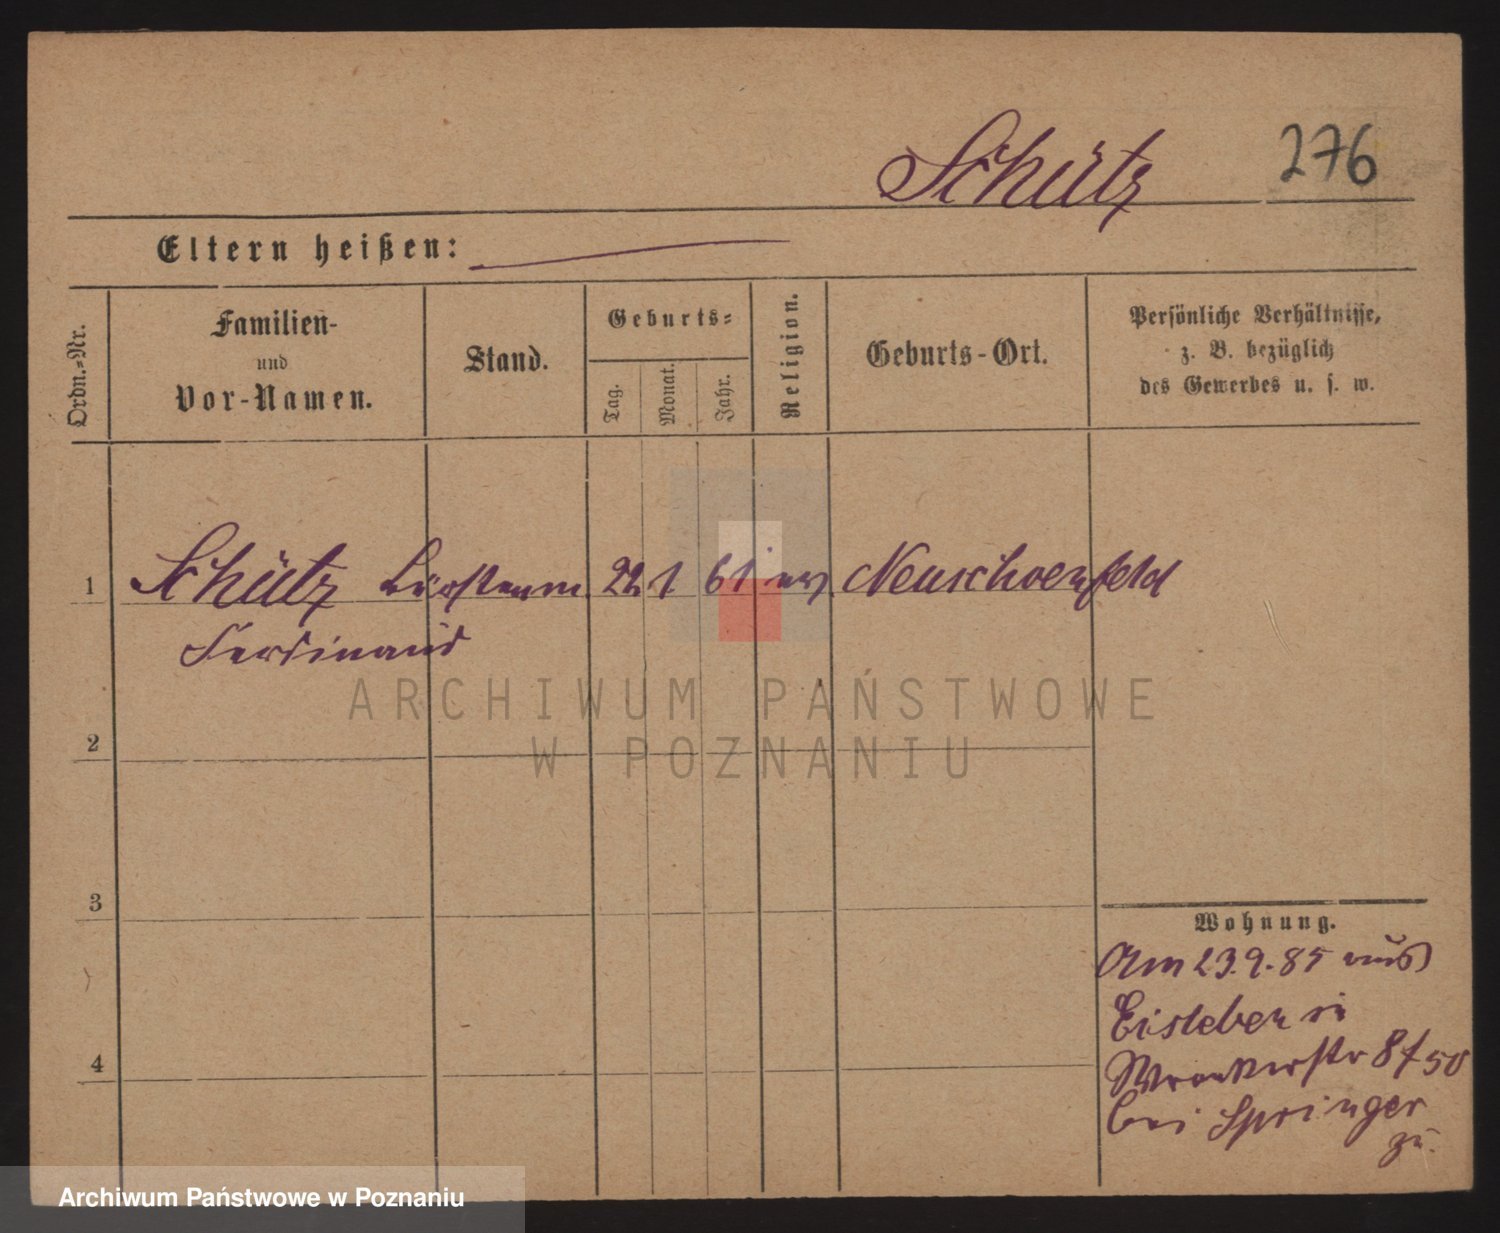 Schütz 276
Eltern heißen:
Ordn.-Nr.
Familien-
und
Vor-Namen.
Stand.
Geburts-
Tag.
Monat.
Jahr.
Religion.
Geburts-Ort.
Persönliche Verhältnisse,
z. B. bezüglich
des Gewerbes u. s. w.
1 Schütz 22 1 61 ev Neuschoenfeld
Ferdinand
ARCHIWUM PAŃSTWOWE
W POZNANIU
2
3
4
Wohnung.
Am 23.9.85 aus
Eisleben in
Wronkerstr 8 / 50
bei Springer
zu.
Archiwum Państwowe w Poznaniu